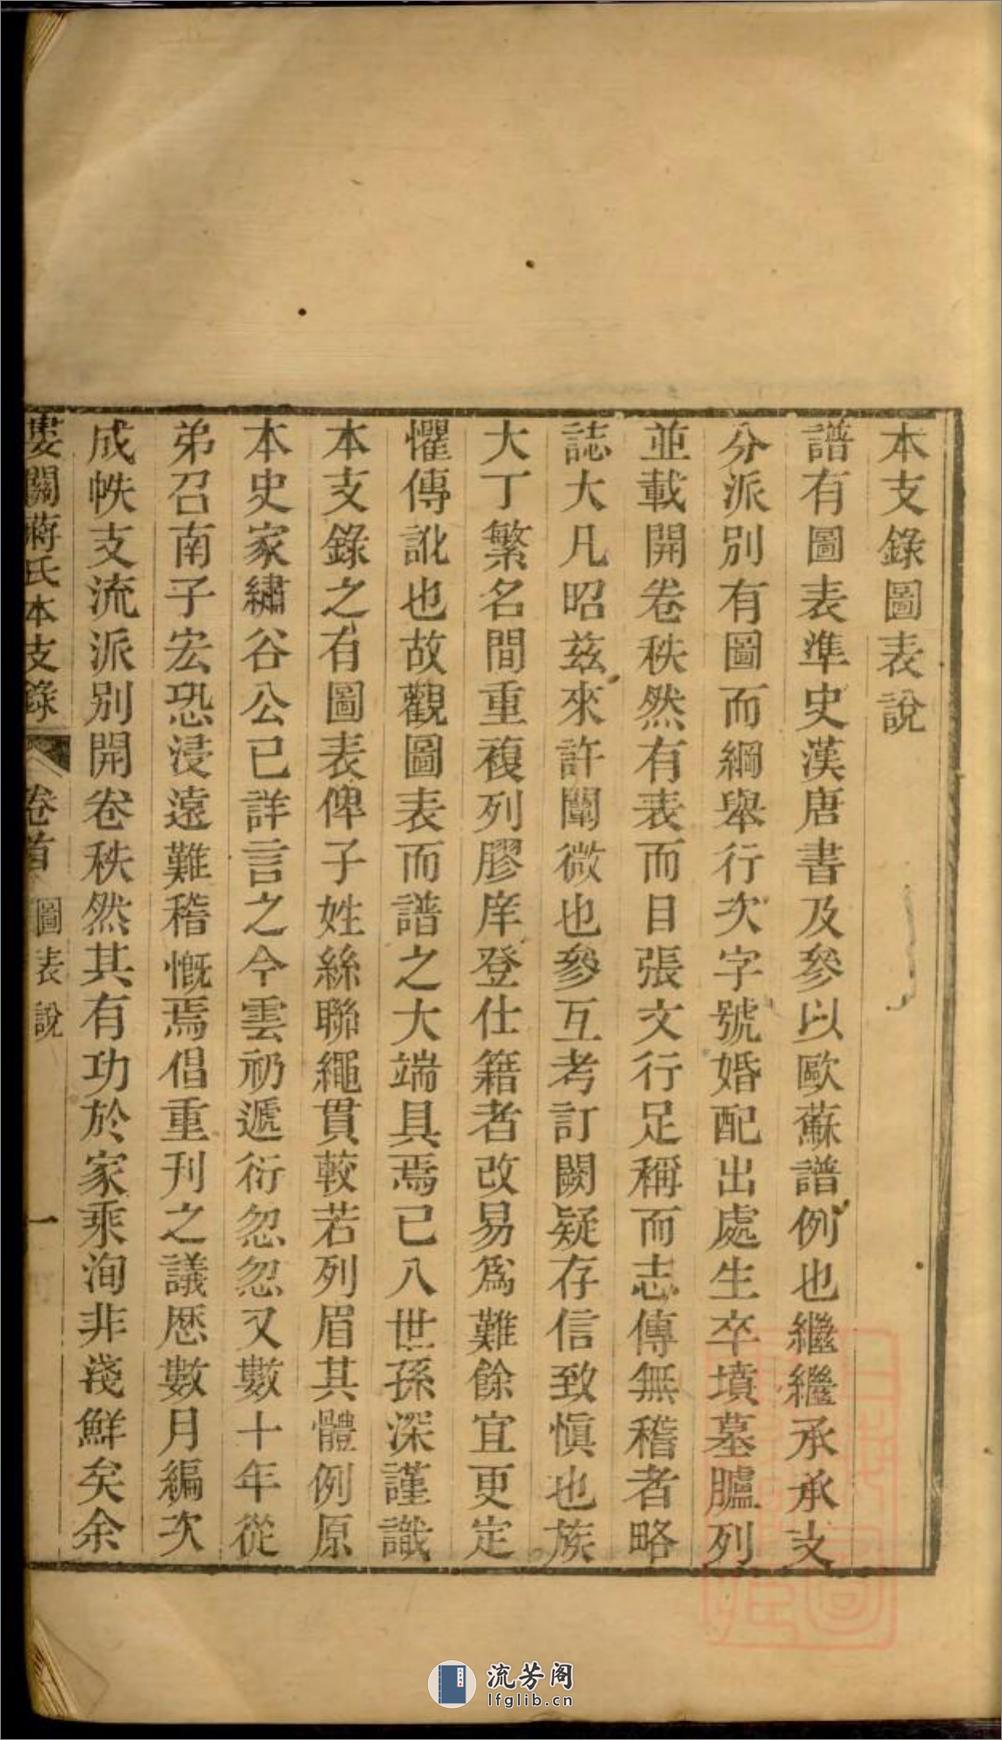 本支錄圖表說
譜有圖表準史漢唐書及參以歐蘇譜例也繼繼承承支
分派別有圖而綱舉行次字號婚配出處生卒墳墓臚列
並載開卷秩然有表而目張文行足稱而志傳無稽者略
誌大凡昭茲來許闡微也參互考訂闕疑存信致愼也族
大丁繁名間重複列膠庠登仕籍者改易爲難餘宜更定
懼傳訛也故觀圖表而譜之大端具焉已八世孫深謹識
本支錄之有圖表俾子姓絲聯繩貫較若列眉其體例原
本史家繡谷公已詳言之今雲礽遞衍忽忽又數十年從
弟召南子宏恐浸遠難稽慨焉倡重刊之議歷數月編次
成帙支流派別開卷秩然其有功於家乘洵非淺鮮矣余
婁關蔣氏本支錄 卷首 圖表說 一
流芳阁
lfglib.cn